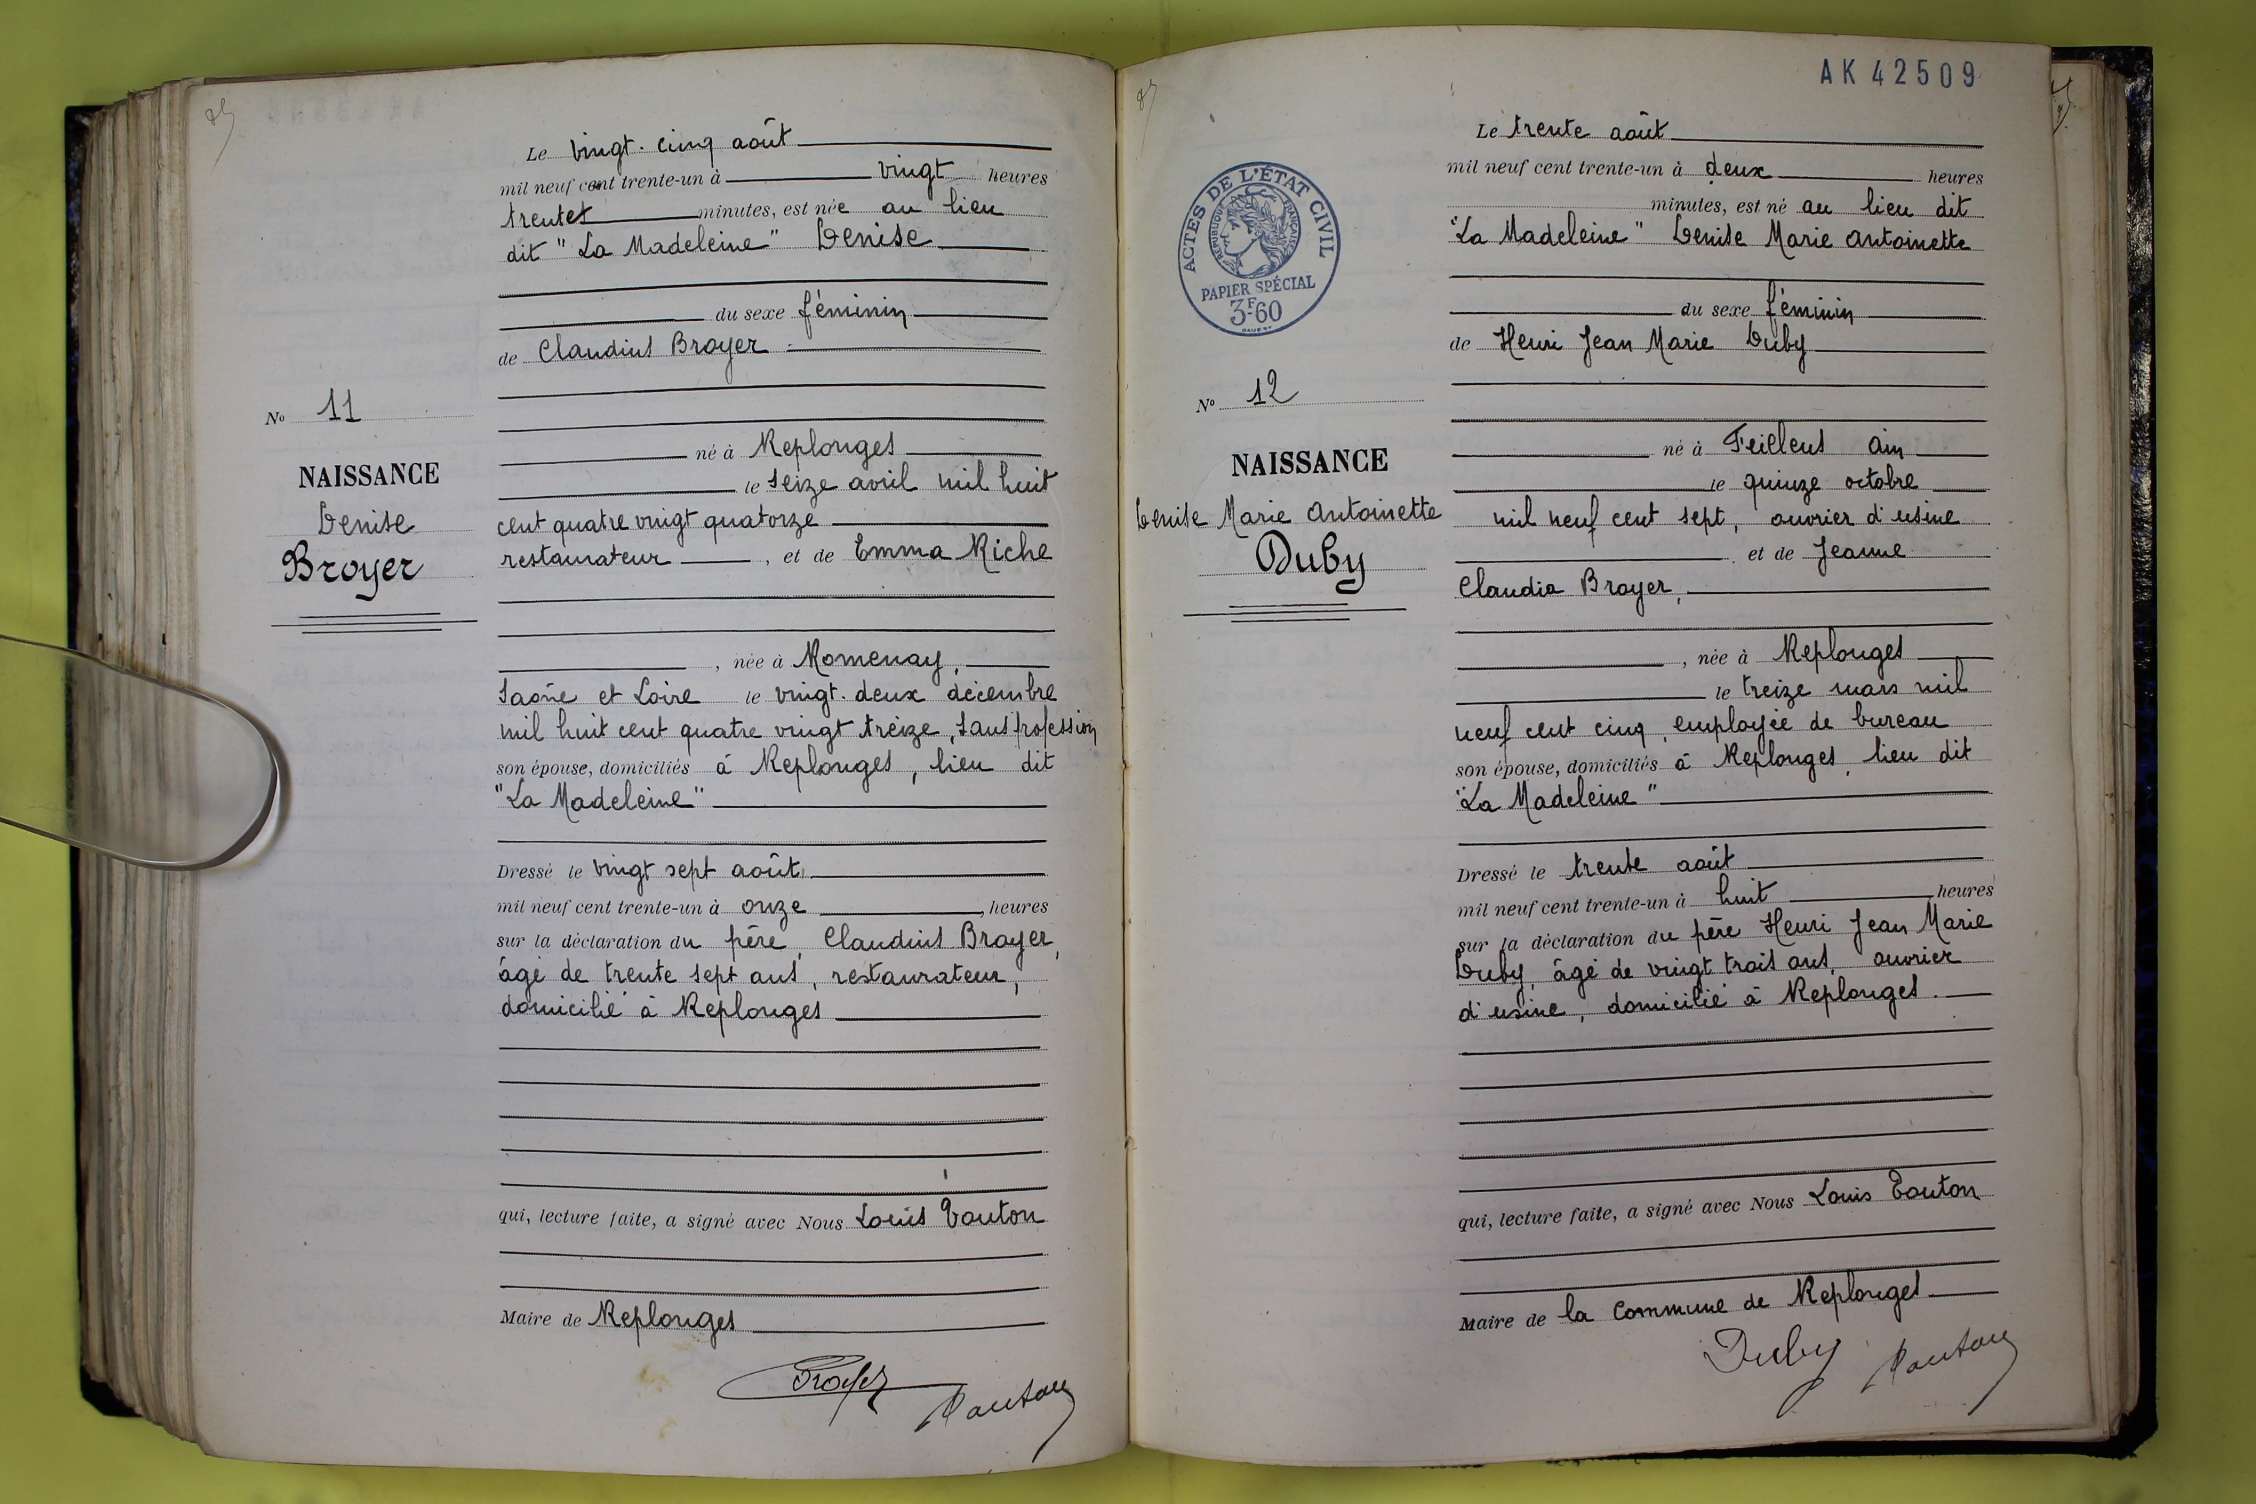 Le vingt-cinq août
mil neuf cent trente-un à vingt heures
trente minutes, est née au lieu
dit "La Madeleine" Denise
du sexe féminin
de Claudius Broyer
né à Replonges
le seize avril mil huit
cent quatre vingt quatorze
restaurateur, et de Emma Riche
, née à Romenay,
Saône et Loire le vingt-deux décembre
mil huit cent quatre vingt treize, sans profession
son épouse, domiciliés à Replonges, lieu dit
"La Madeleine"
Dressé le vingt sept août
mil neuf cent trente-un à onze, heures
sur la déclaration du père, Claudius Broyer,
âgé de trente sept ans, restaurateur,
domicilié à Replonges
qui, lecture faite, a signé avec Nous Louis Touton
Maire de Replonges
Broyer
Touton
No 11
NAISSANCE
Denise
Broyer
AK 42509
ACTES DE L'ÉTAT CIVIL
RÉPUBLIQUE FRANÇAISE
PAPIER SPÉCIAL
3F60
No 12
NAISSANCE
Denise Marie Antoinette
Duby
Le trente août
mil neuf cent trente-un à deux heures
minutes, est né au lieu dit
"La Madeleine" Denise Marie Antoinette
du sexe féminin
de Henri Jean Marie Duby
né à Feillens Ain
le quinze octobre
mil neuf cent sept, ouvrier d'usine
et de Jeanne
Claudia Broyer,
, née à Replonges
le treize mars mil
neuf cent cinq, employée de bureau
son épouse, domiciliés à Replonges, lieu dit
"La Madeleine"
Dressé le trente août
mil neuf cent trente-un à huit heures
sur la déclaration du père Henri Jean Marie
Duby, âgé de vingt trois ans, ouvrier
d'usine, domicilié à Replonges.
qui, lecture faite, a signé avec Nous Louis Touton
Maire de la commune de Replonges
Duby
Touton